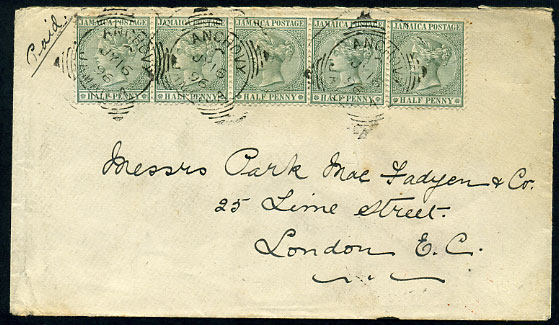 Paid.
JAMAICA POSTAGE JAMAICA POSTAGE JAMAICA POSTAGE JAMAICA POSTAGE JAMAICA POSTAGE
ANCHOVY ANCHOVY ANCHOVY
JAMAICA
96
HALF PENNY HALF PENNY HALF PENNY HALF PENNY HALF PENNY
Messrs Park Mac Fadyen & Co.
25 Lime Street.
London E.C.